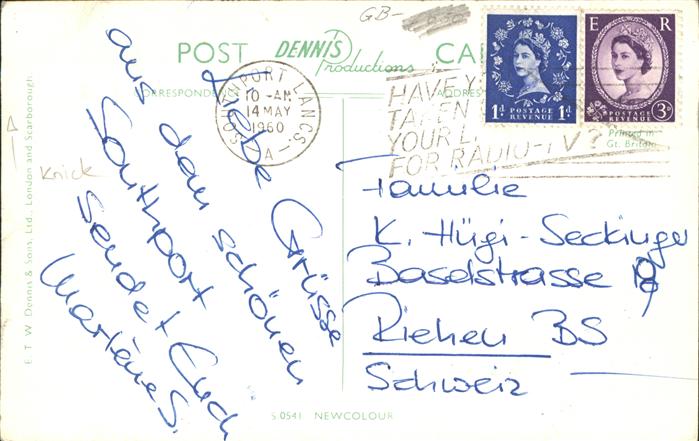 GB-
POST
DENNIS
Productions
CA
CORRESPONDENCE
ADDRESS
SOUTHPORT LANCS
10 - AM
14 MAY
1960
A
HAVE Y
TAKEN
YOUR L
FOR RADIO-TV?
1d POSTAGE REVENUE 1d
E R
POSTAGE REVENUE 3d
Printed in
Gt. Britain
Knick
E. T. W. Dennis & Sons, Ltd., London and Scarborough
Liebe Grüsse
aus dem schönen
Southport
sendet Euch
Marlène S.
Familie
K. Hügi-Seckinger
Baselstrasse
Riehen BS
Schweiz
S.0541 NEWCOLOUR